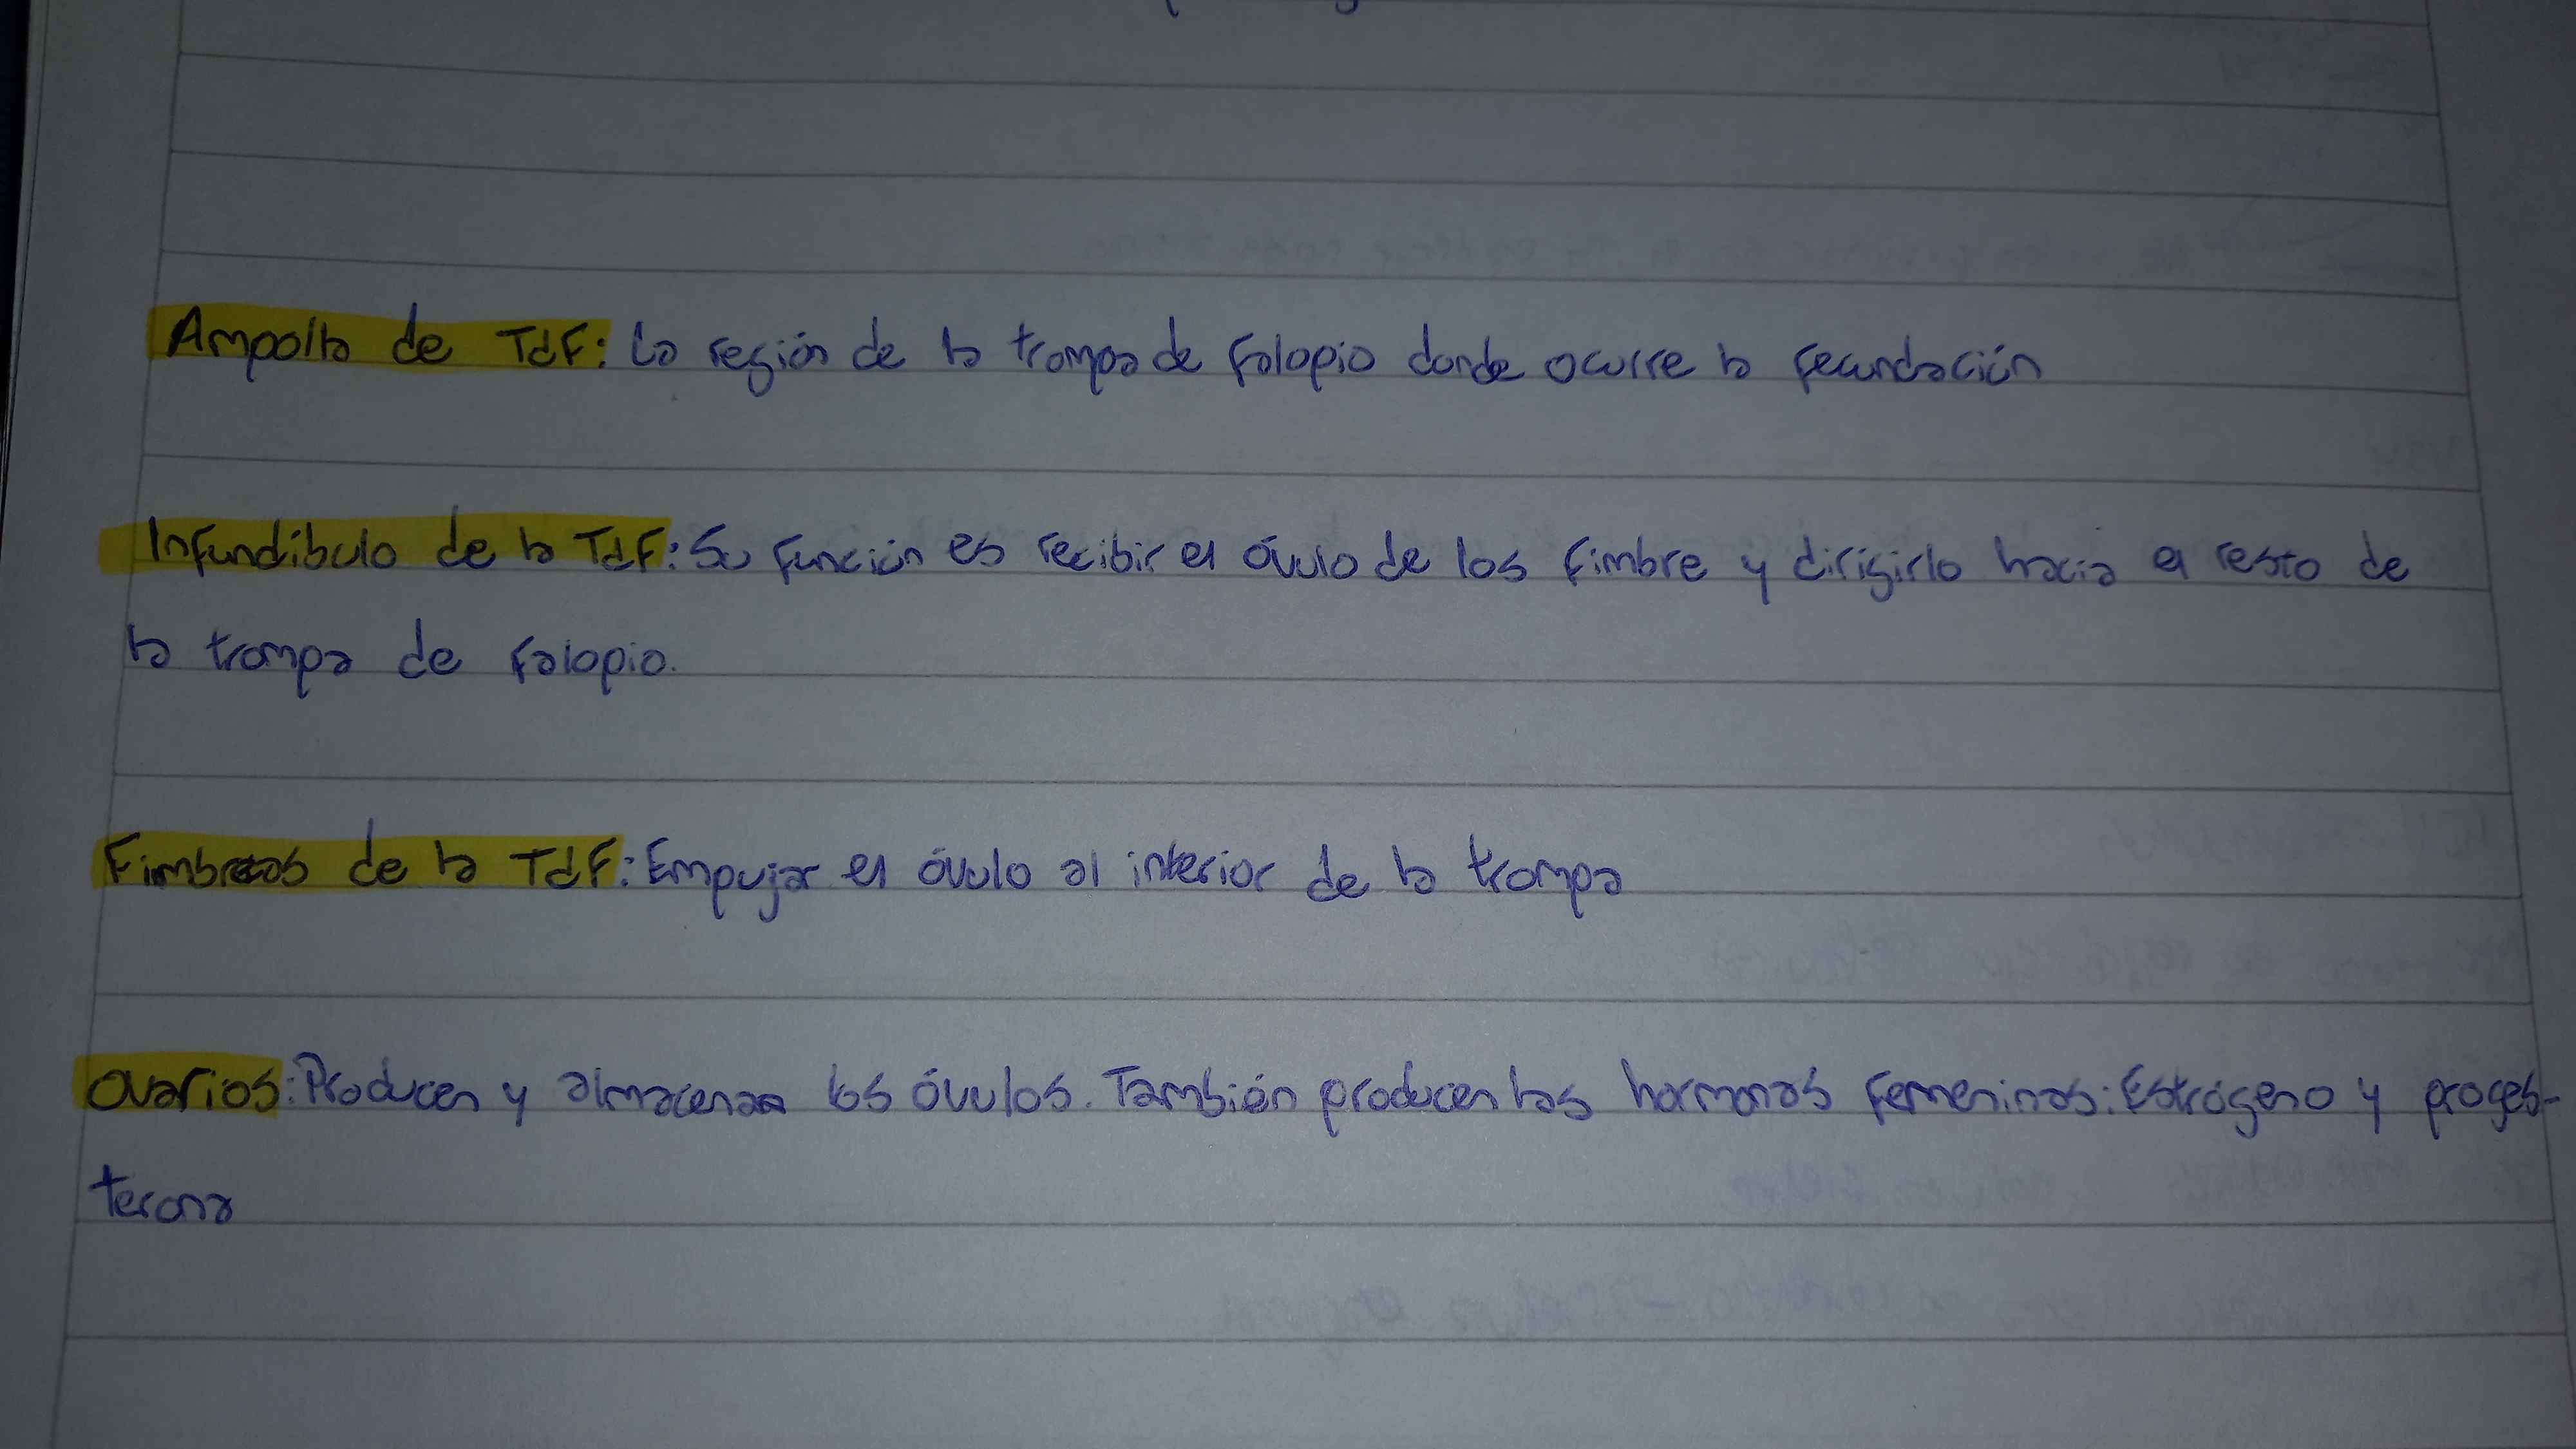 Ampolla de TdF: La región de la trompa de falopio donde ocurre la fecundación
Infundíbulo de la TdF: Su función es recibir el óvulo de los fimbre y dirigirlo hacia el resto de
la trompa de falopio.
Fimbreas de la TdF: Empujar el óvulo al interior de la trompa
Ovarios: Producen y almacenan los óvulos. También producen las hormonas femeninas: Estrógeno y proges-
terona